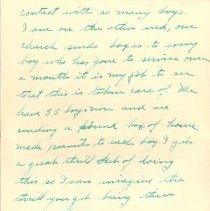 contact with so many boys.
I am on the other end, our
church sends boxes to every
boy who has gone to service once
a month it is my job to see
that this is taken care of. We
have 55 boys now and are
sending a pound box of home
made peanuts to each boy I get
a great thrill out of doing
this so I can imagine the
thrill you get being there